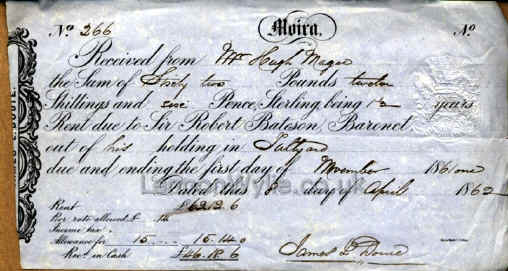 Nº 266 Moira. Nº
Received from Mr Hugh Magee
the Sum of Sixty two Pounds twelve
Shillings and six Pence, Sterling, being 1/2 years
Rent due to Sir Robert Bateson Baronet
out of his holding in Tullyard
due and ending the first day of November 1861 one
Dated this 8 day of April 1862
LennonWylie.co.uk
Rent £62.12.6
Poor rate allowed £
Income tax
Allowance for 15 15.14.0
Recd. in Cash £46.18.6
James